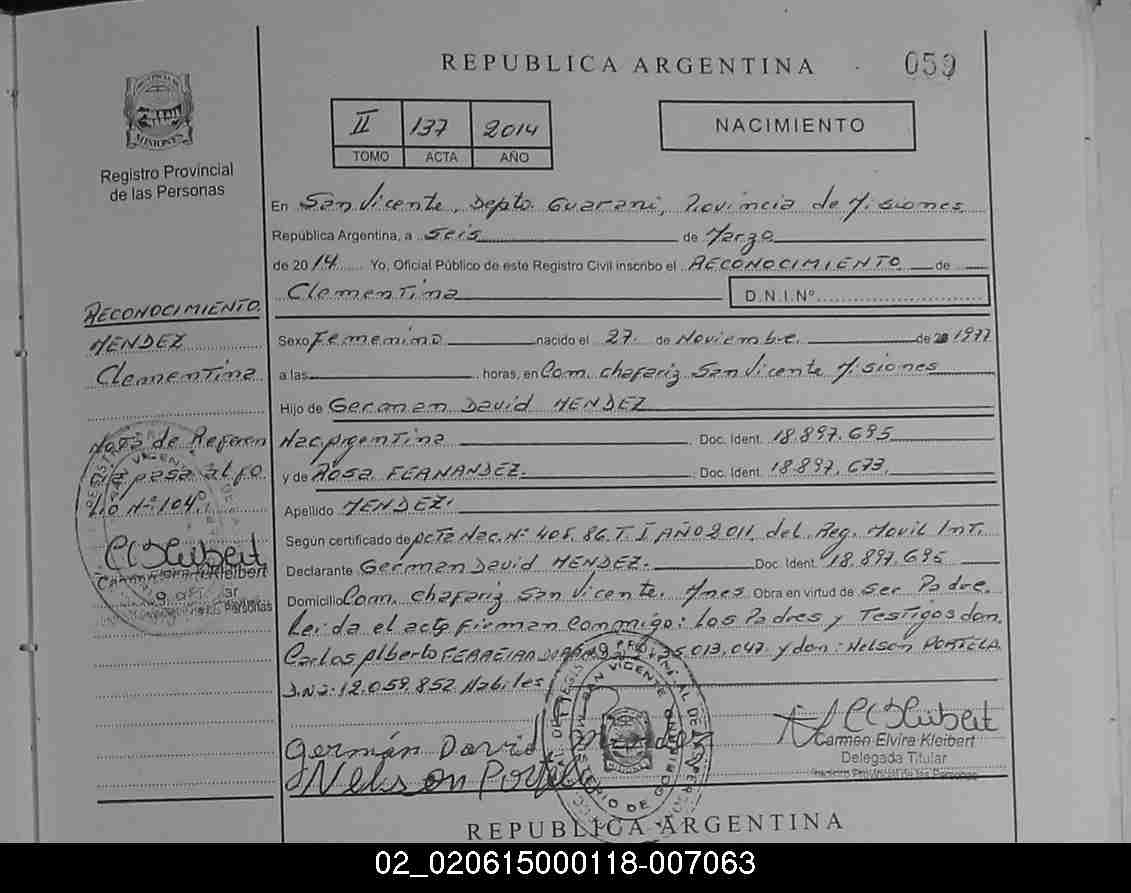 REPUBLICA ARGENTINA
059
MISIONES
Registro Provincial
de las Personas
II 137 2014
TOMO ACTA AÑO
NACIMIENTO
En San Vicente, Depto. Guaraní, Provincia de Misiones
República Argentina, a seis de Marzo
de 2014 Yo, Oficial Público de este Registro Civil inscribo el RECONOCIMIENTO de
Clementina D.N.I.Nº
RECONOCIMIENTO.
MENDEZ
Clementina
Nota de Referen
cia pasa al fo
lio Nº 104.
Carmen Elvira Kleibert
Sexo Femenino nacido el 27. de Noviembre de 1977
a las horas, en Com. Chafariz San Vicente Misiones
Hijo de German David MENDEZ
Nac. Argentina Doc. Ident. 18.897.695
y de Rosa FERNANDEZ. Doc. Ident. 18.897.673.
Apellido MENDEZ.
Según certificado de Acta Nac. Nº 405. 86. T. I AÑO 2011, del Reg. Movil Int.
Declarante German David MENDEZ. Doc. Ident. 18.897.695
Domicilio Com. Chafariz San Vicente. Mnes Obra en virtud de ser Padre.
Leida el acta Firman Conmigo: Los Padres y Testigos don.
Carlos Alberto 35.013.047. y don: Nelson PORTELA.
D.N.I: 12.059.852 Habiles
Germán David Mendez
Nelson Portela
Carmen Elvira Kleibert
Delegada Titular
Registro Provincial de las Personas
SAN VICENTE
MINISTERIO DE GOBIERNO
REPUBLICA ARGENTINA
02_020615000118-007063